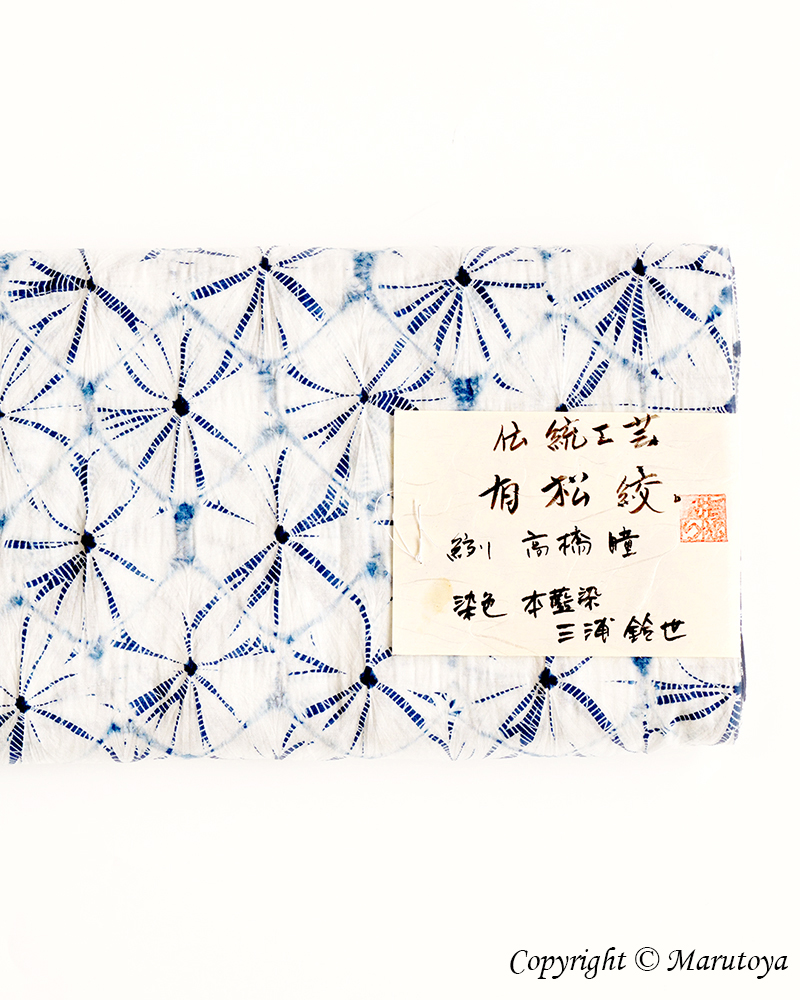 伝統工芸
有松絞。
絞り 高橋 瞳
染色 本藍染
三浦 鈴世
Copyright © Marutoya